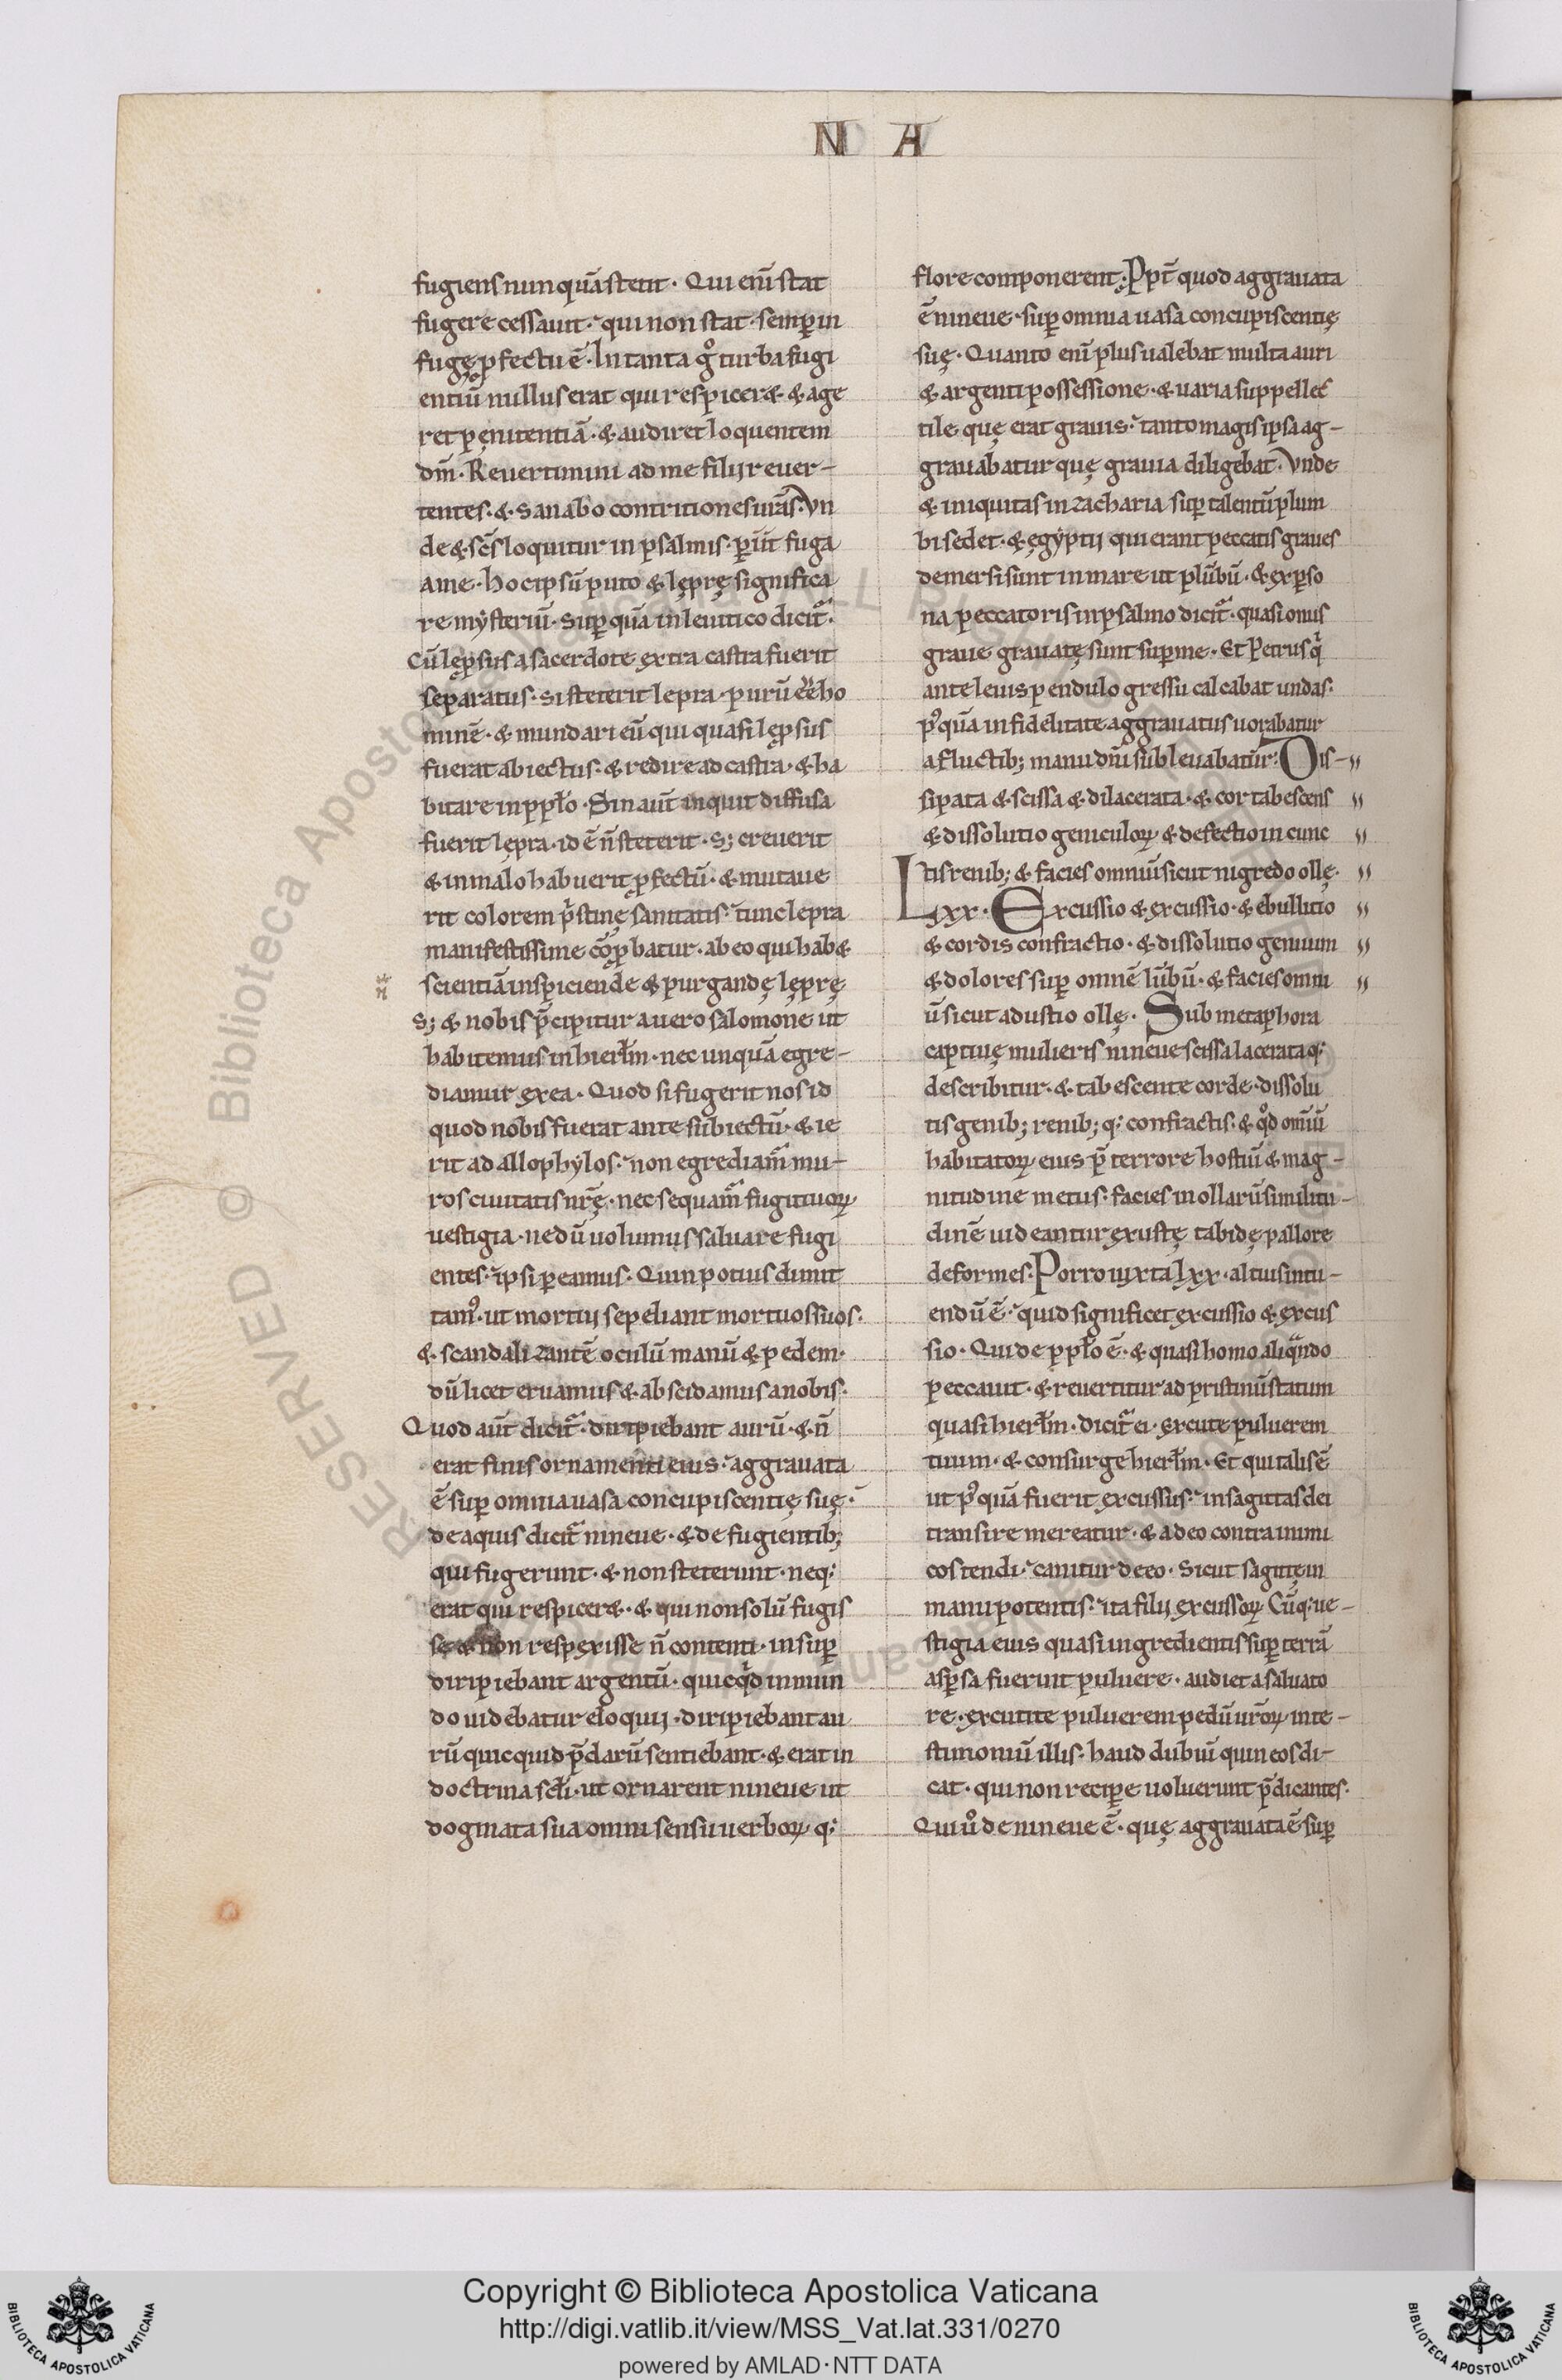 N A
fugiens nunquā stetit· Qui enī stat
fugere cessauit· qui non stat· semꝑ in
fugę ꝓfectu ē· In tanta gͦ turba fugi
entiū nullus erat qui respiceret & age
ret pęnitentiā· & audiret loquentem
dm̄· Reuertimini ad me filij reuer-
tentes· & sanabo contritiones urās· Vn
de & scs̄ loquitur in psalmis· ꝑiit fuga
a me· hoc ipsū puto & leprę significa
re mẏsteriū· Suꝑ quā in leuitico dicit̄·
Cū leprosus a sacerdote extra castra fuerit
separatus· si steterit lepra· purū eē ho
minē· & mundari eū qui quasi leprosus
fuerat abiectus· & redire ad castra· & ha
bitare in pp̄lo· Sin aut̄ inquit diffusa
fuerit lepra· id ē n̄ steterit· s; creuerit
& in malo habuerit ꝓfectū· & mutaue
rit colorem p̄stinę sanitatis· tunc lepra
manifestissime cōꝓbatur· ab eo qui habet
scientiā inspiciende & purgandę leprę
S; & nobis p̄cipitur a uero salomone ut
habitemus in hierłm· nec unquā egre-
diamur ex ea· Quod si fugerit nos id
quod nobis fuerat ante subiectū· & ie
rit ad allophẏlos· non egrediam̄ mu-
ros ciuitatis nr̄ę· nec sequam̄ fugitiuoꝝ
uestigia· ne dū uolumus saluare fugi
entes· ipsi ꝑeamus· Quin potius dimit
tamꝰ· ut mortui sepeliant mortuos suos·
& scandalizantē oculū manū & pedem·
dū licet eruamus & abscidamus a nobis·
Quod aut̄ dicit̄· diripiebant aurū· & n̄
erat finis ornamenti eius· aggrauata
ē suꝑ omnia uasa concupiscentię suę·
de aquis dicit̄ nineue· & de fugientib;
qui fugerunt· & non steterunt· neq;
erat qui respiceret· & qui non solū fugis
se & non respexisse n̄ contenti· insuꝑ
diripiebant argentū· quicqd̄ in mun
do uidebatur eloquij· diripiebant au
rū quicquid p̄clarū sentiebant· & erat in
doctrina sc̄li· ut ornarent nineue ut
dogmata sua omni sensu uerboꝝ q;
flore componerent· Ppt̄ quod aggrauata
ē nineue· suꝑ omnia uasa concupiscentię
suę· Quanto enī plus ualebat multa auri
& argenti possessione· & uaria suppellec
tile que erat grauis· tanto magis ipsa ag-
grauabatur quę grauia diligebat· Vnde
& iniquitas in zacharia suꝑ talentū plum
bi sedet· & egẏptij qui erant peccatis graues
demersi sunt in mare ut plūbū· & ex ꝑso
na peccatoris in psalmo dicit̄· quasi onus
graue grauatę sunt suꝑ me· Et Petrus q̄
ante leuis pendulo gressu calcabat undas·
pꝰquā infidelitate aggrauatus uorabatur
a fluctib; manu dn̄i subleuabatur· Dis-
sipata & scissa & dilacerata· & cor tabescens
& dissolutio geniculoꝝ & defectio in cunc
tis renib; & facies omniū sicut nigredo ollę·
Lxx· Excussio & excussio· & ebullitio
& cordis confractio· & dissolutio genuum
& dolores suꝑ omnē lūbū· & facies omni
ū sicut adustio ollę· Sub metaphora
captiuę mulieris nineue scissa lacerataq;
describitur· & tabescente corde· dissolu
tis genib; renib; q; confractis· & qd̄ omīū
habitatoꝝ eius p̄ terrore hostiū & mag-
nitudine metus· facies in ollarū similitu-
dinē uideantur exustę tabidę pallore
deformes· Porro iuxta lxx· altius intu-
endū ē· quid significet excussio & excus
sio· Qui de pp̄lo ē· & quasi homo aliqn̄do
peccauit· & reuertitur ad pristinū statum
quasi hierłm· dicit̄ ei· excute puluerem
tuum· & consurge hierłm· Et qui talis ē
ut pꝰquā fuerit excussus· in sagittas dei
transire mereatur· & a deo contra inimi
cos tendi· canitur de eo· Sicut sagitte in
manu potentis· ita filij excussoꝝ Cūq; ue-
stigia eius quasi ingredientis suꝑ terrā
asꝑsa fuerint puluere· audiet a saluato
re· excutite puluerem pedū ur̄oꝝ in te-
stimoniū illis· haud dubiū quin eos di-
cat· qui non reciꝑe uoluerunt p̄dicantes·
Qui ů de nineue ē· quę aggrauata ē suꝑ
Copyright © Biblioteca Apostolica Vaticana
http://digi.vatlib.it/view/MSS_Vat.lat.331/0270
powered by AMLAD·NTT DATA
BIBLIOTECA APOSTOLICA VATICANA
BIBLIOTECA APOSTOLICA VATICANA